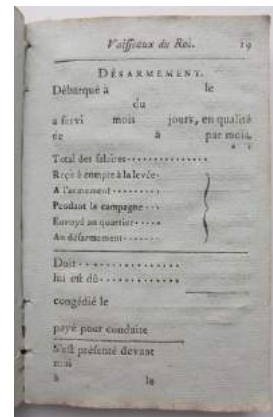 Vaisseaux du Roi. 19
DÉSARMEMENT.
Débarqué à le
du
a servi mois jours, en qualité
de à par mois.
Total des salaires
Reçû à compte à la levée
A l'armement
Pendant la campagne
Envoyé au quartier
Au désarmement
Doit
lui est dû
congédié le
payé pour conduite
S'est présenté devant
moi
à le